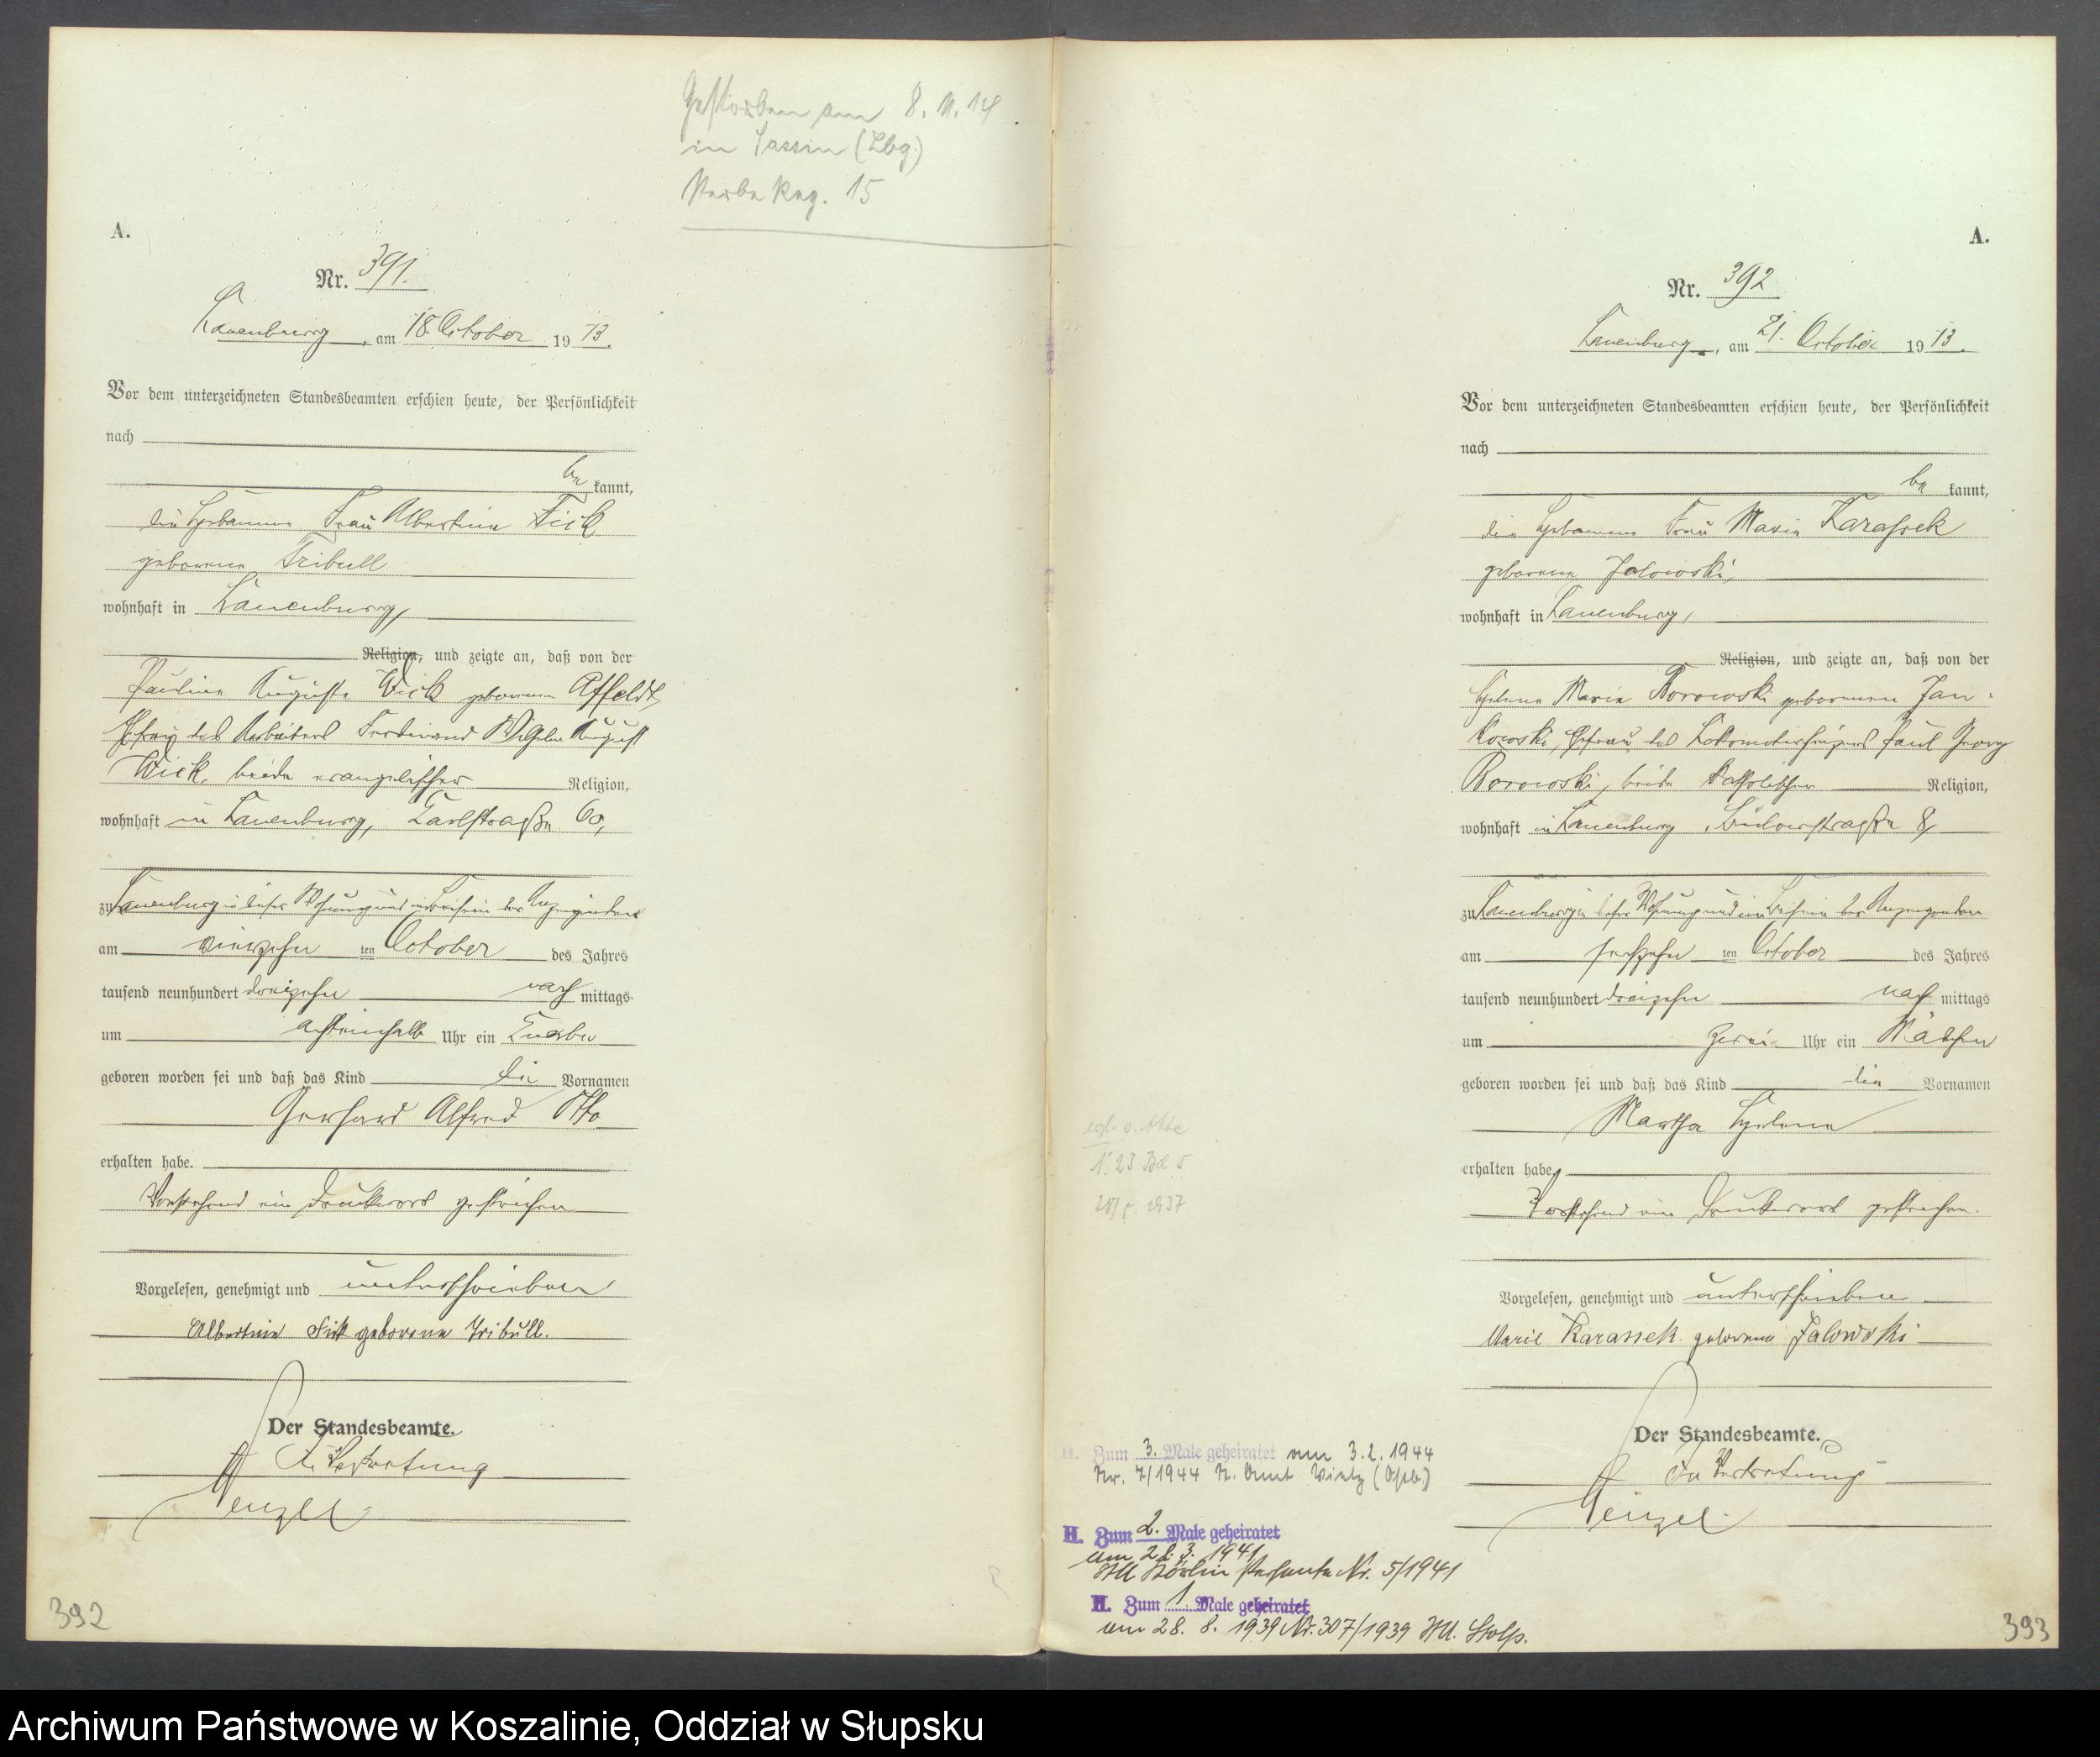 Gestorben am 8. 11. 14
in Sassin (Lbg.)
Sterbe Reg. 15
A.
Nr. 391.
Lauenburg, am 18 October 1913.
Vor dem unterzeichneten Standesbeamten erschien heute, der Persönlichkeit
nach
be kannt,
die Hebamme Frau Albertine Fick
geborene Tribull
wohnhaft in Lauenburg,
Religion, und zeigte an, daß von der
Pauline Auguste Wick geborenen Affeldt,
Ehefrau des Arbeiters Ferdinand Wilhelm August
Wick, beide evangelischer Religion,
wohnhaft in Lauenburg, Karlstraße
zu Lauenburg in dieser Wohnung und im Beisein der Anzeigenden
am vierzehn ten October des Jahres
tausend neunhundert dreizehn nach mittags
um achteinhalb Uhr ein Knabe
geboren worden sei und daß das Kind die Vornamen
Gerhard Alfred Otto
erhalten habe.
Vorstehend ein Druckwort gestrichen
Vorgelesen, genehmigt und unterschrieben
Albertine Fick geborene Tribull.
Der Standesbeamte.
In Vertretung
Wenzel
392
A.
Nr. 392
Lauenburg, am 21. October 1913.
Vor dem unterzeichneten Standesbeamten erschien heute, der Persönlichkeit
nach
be kannt,
die Hebamme Frau Marie Karassek
geborene Jalowski,
wohnhaft in Lauenburg,
Religion, und zeigte an, daß von der
Helene Marie Borowski geborenen Jan-
kowski, Ehefrau des Lokomotivheizers Paul Georg
Borowski, beide katholischer Religion,
wohnhaft in Lauenburg, Bülowstraße 8,
zu Lauenburg in dieser Wohnung und im Beisein der Anzeigenden
am sechzehn ten October des Jahres
tausend neunhundert dreizehn nach mittags
um zwei Uhr ein Mädchen
geboren worden sei und daß das Kind die Vornamen
Martha Helene
erhalten habe.
Vorstehend ein Druckwort gestrichen.
Vorgelesen, genehmigt und unterschrieben
Marie Karassek geborene Jalowski
Der Standesbeamte.
In Vertretung
Wenzel.
N. 23 Bd 5
1937
H. Zum 3. Male geheiratet am 3.2.1944
Nr. 7/1944
H. Zum 2. Male geheiratet
am 3. 1941
Nr. 5/1941
H. Zum 1. Male geheiratet
am 28. 8. 1939 Nr. 307/1939 StA. Stolp.
393
Archiwum Państwowe w Koszalinie, Oddział w Słupsku